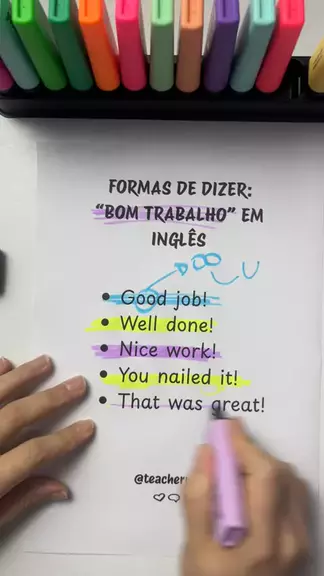 FORMAS DE DIZER:
"BOM TRABALHO" EM
INGLÊS
• Good job!
• Well done!
• Nice work!
• You nailed it!
• That was great!